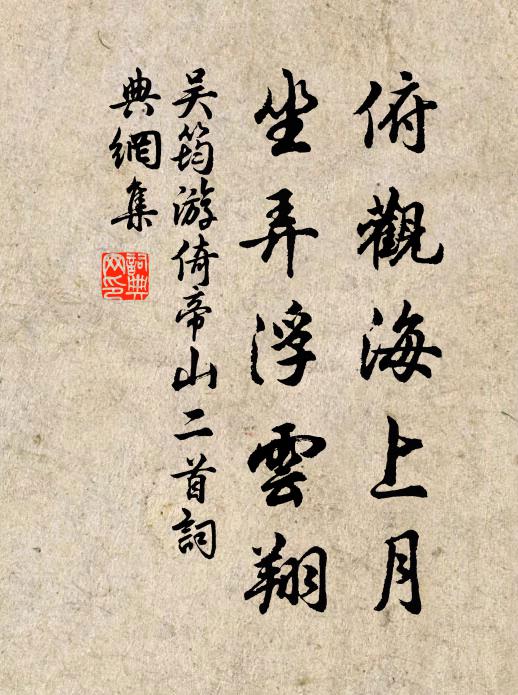 俯觀海上月
坐弄浮雲翔
吴筠游倚帝山二首詞
典網集
詞典
网印